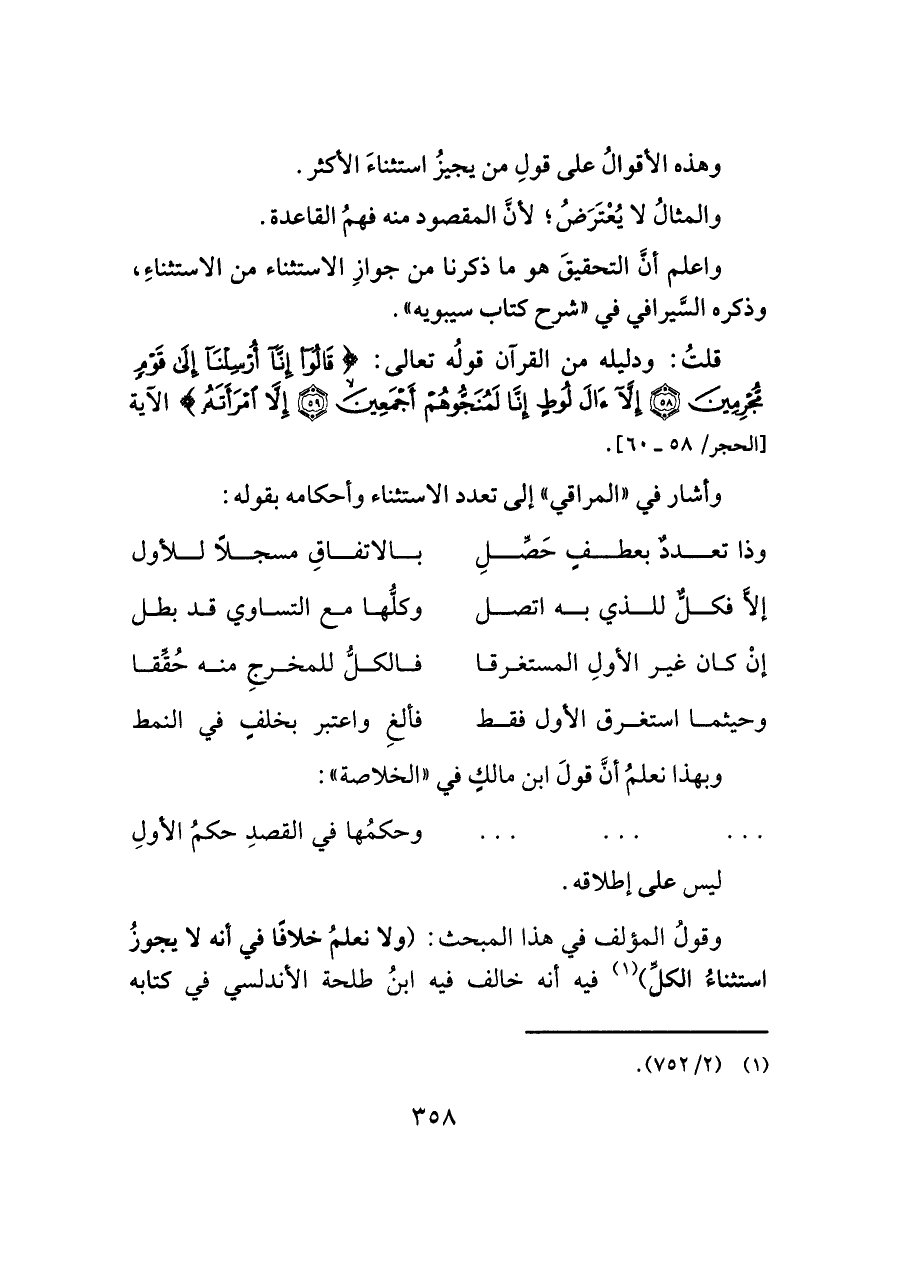 وهذه الأقوالُ على قولِ من يجيزُ استثناءَ الأكثر.
والمثالُ لا يُعْتَرَضُ؛ لأنَّ المقصود منه فهمُ القاعدة.
واعلم أنَّ التحقيقَ هو ما ذكرنا من جوازِ الاستثناء من الاستثناءِ،
وذكره السَّيرافي في «شرح كتاب سيبويه».
قلتُ: ودليله من القرآن قولُه تعالى: ﴿ قَالُوٓاْ إِنَّآ أُرْسِلْنَآ إِلَىٰ قَوْمٍ
مُّجْرِمِينَ ۝٥٨ إِلَّآ ءَالَ لُوطٍ إِنَّا لَمُنَجُّوهُمْ أَجْمَعِينَ ۝٥٩ إِلَّا ٱمْرَأَتَهُۥ ﴾ الآية
[الحجر/ ٥٨ ـ ٦٠].
وأشار في «المراقي» إلى تعدد الاستثناء وأحكامه بقوله:
وذا تعــددٌ بعطــفٍ حَصِّــلِ بــالاتفــاقِ مسجــلاً لــلأول
إلاَّ فكــلٌّ للــذي بــه اتصــل وكلُّهـا مـع التسـاوي قـد بطـل
إنْ كـان غيـر الأولِ المستغـرقـا فـالكـلُّ للمخـرجِ منـه حُقِّقـا
وحيثمـا استغـرق الأول فقـط فألغِ واعتبر بخلفٍ في النمط
وبهذا نعلمُ أنَّ قولَ ابن مالكٍ في «الخلاصة»:
... ... ... وحكمُها في القصدِ حكمُ الأولِ
ليس على إطلاقه.
وقولُ المؤلف في هذا المبحث: (ولا نعلمُ خلافًا في أنه لا يجوزُ
استثناءُ الكلِّ)(١) فيه أنه خالف فيه ابنُ طلحة الأندلسي في كتابه
(١) (٢/ ٧٥٢).
٣٥٨